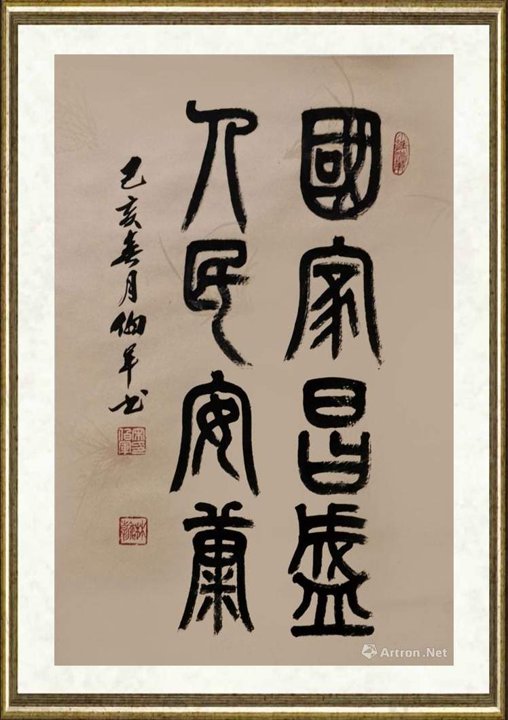 國家昌盛
人民安康
己亥春月伯军书
Artron.Net